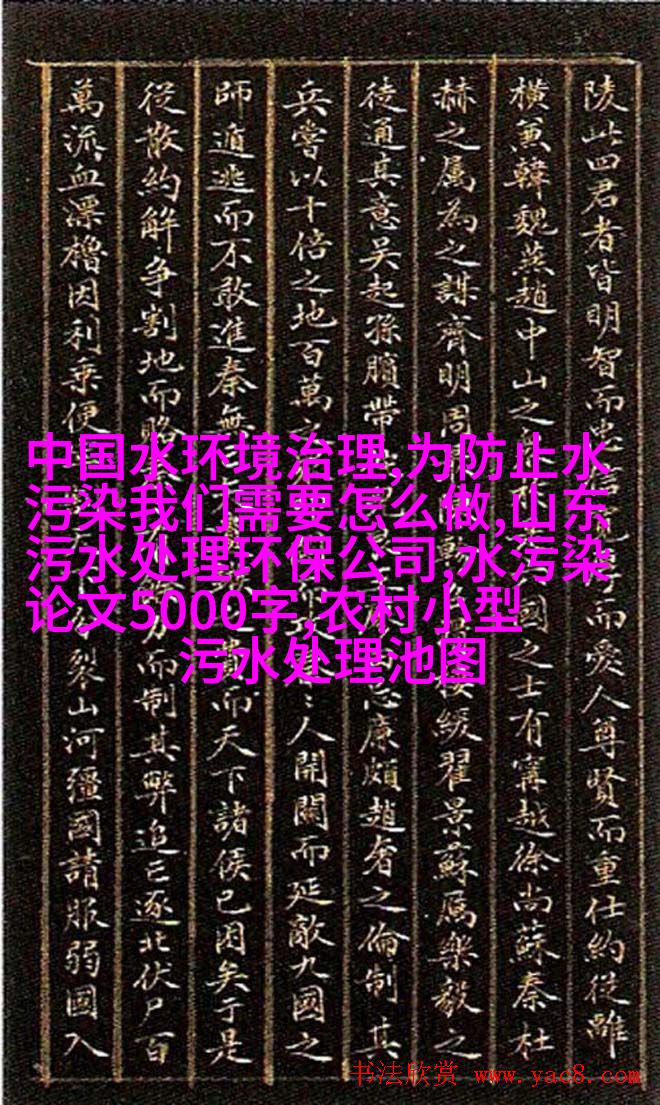 陵此四君者皆明智而忠而愛人尊賢而重仕約從離
橫兼韓魏燕趙中山之國之士有甯越徐尚蘇秦杜
赫之属為之謀齊明周樓緩翟景蘇厲樂毅之
徒通其意吳起孫臏帶忌廉頗趙奢之倫制其
兵嘗以十倍之地百萬人開關而延敵九國之
師遁逃而不敢進秦無而天下諸侯已困矣于是
從散約解争割地而賂力而制其弊追亡逐北伏尸百
萬流血漂櫓因利乘便裂山河彊國請服弱國入
中国水环境治理,为防止水
污染我们需要怎么做,山东
污水处理环保公司,水污染
论文5000字,农村小型
污水处理池图
书法欣赏 www.yac8.com